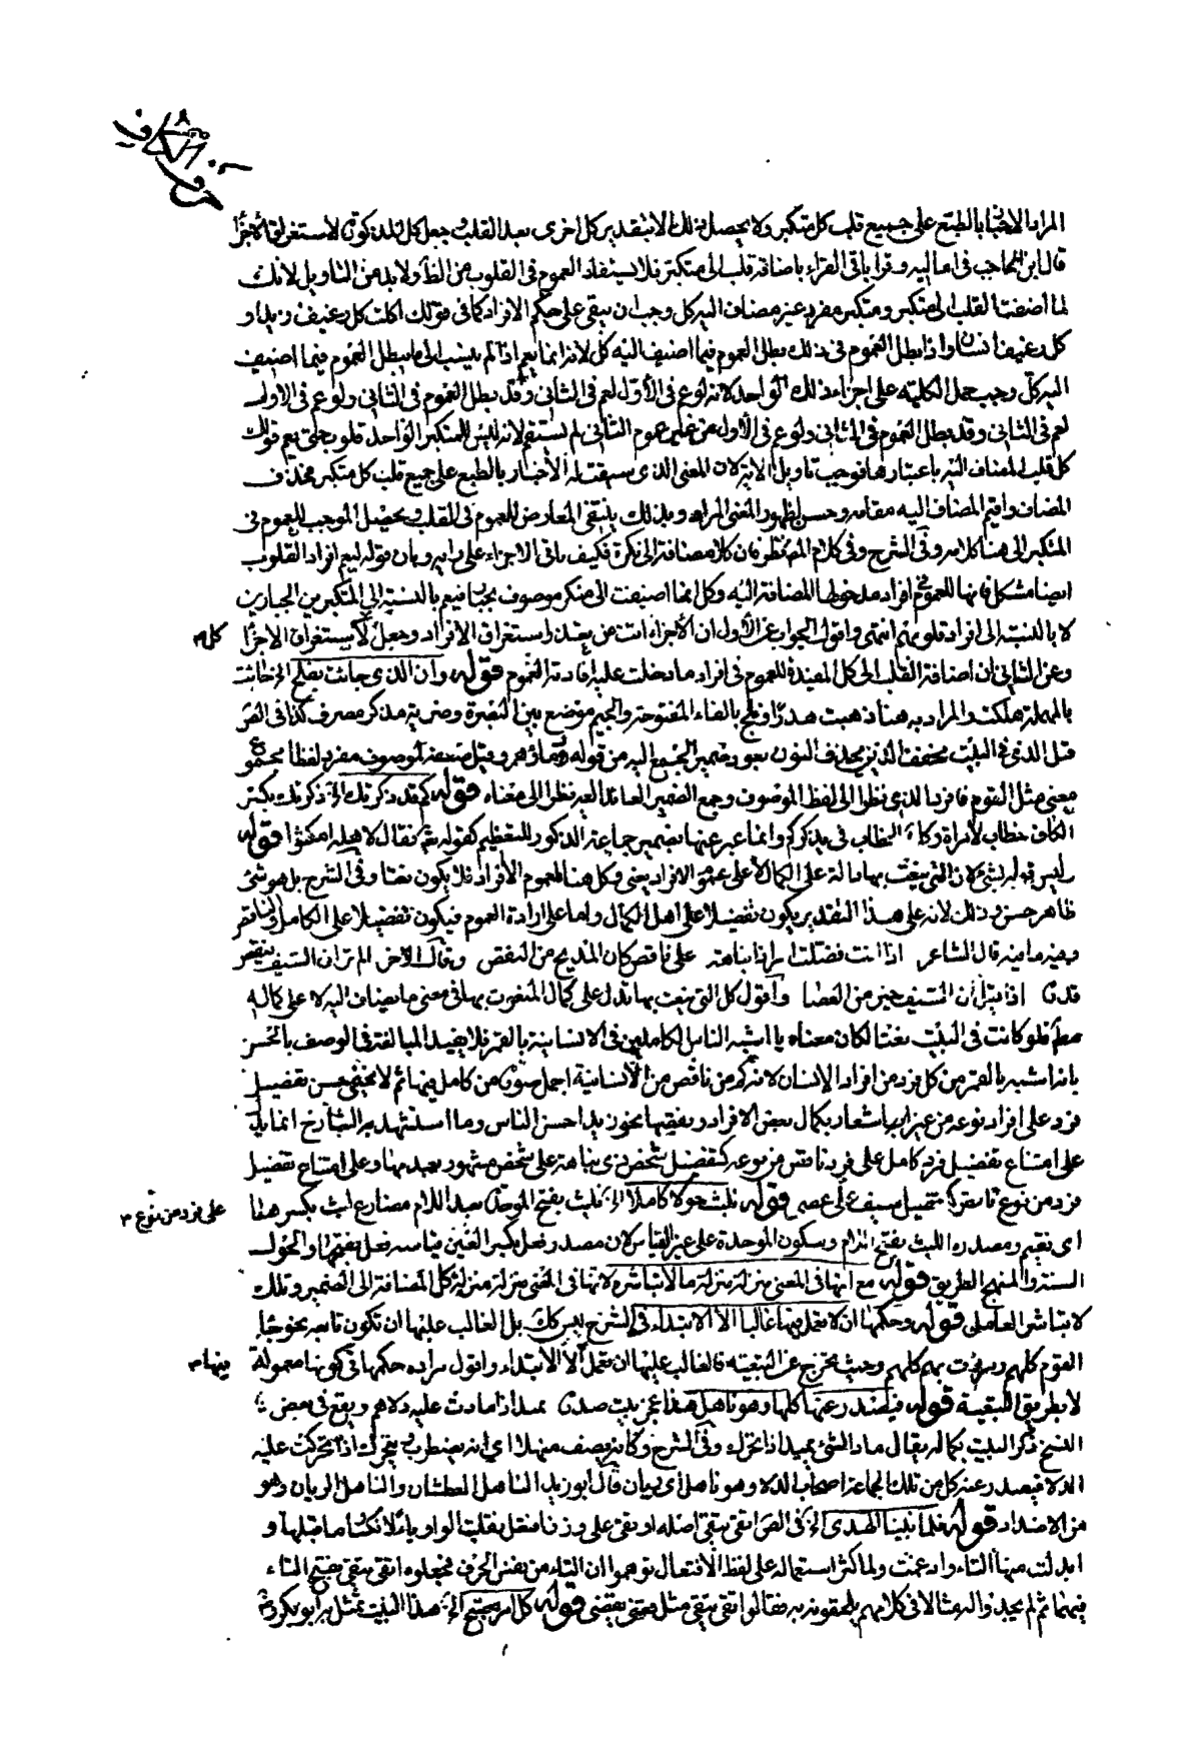 حرف الكاف
المراد الاخبار بالطبع على جميع قلب كل متكبر ولا يحصل ذلك الا بتقدير كل اخرى بعد القلب وجعل كل المذكورة لاستغراق الاجزا
قال ابن الحاجب في اماليه وقرا باقي القراء باضافة قلب الى متكبر فلا يستفاد العموم في القلوب من الظاهر ولا بد من التاويل لانك
لما اضفت القلب الى متكبر ومتكبر مفرد غير مضاف اليه كل وجب ان يبقى على حكم الافراد كما في قولك اكلت كل رغيف زيد او
كل رغيف انسان واذا بطل العموم في ذلك بطل العموم فيما اضيف اليه كل لانه انما يعم اذا لم ينسب الى ما يبطل العموم فيما اضيف
اليه كل وجب حمل الكلية على اجزاء ذلك الواحد لانه لو عم في الأول لعم في الثاني وقد بطل العموم في الثاني ولو عم في الاول
لعم في الثاني وقد بطل العموم في الثاني ولو عم في الأول من غير عموم الثاني لم يستقم لانه ليس للمتكبر الواحد قلوب حتى يعم قولك
كل قلب المضاف اليه باعتبارها فوجب تاويل الاية لان المعنى الذي سيقت له الأخبار بالطبع على جميع قلب كل متكبر فحذف
المضاف واقيم المضاف اليه مقامه وحسن لظهور المعنى المراد وبذلك ينتفي المعارض للعموم في القلب ويحصل الموجب للعموم في
المتكبر الى هنا كلامه وفي الشرح وفي كلام المص نظر فان كلا مضافة الى نكرة فكيف ياتي الاجزاء على رايه وبان قوله ليعم افراد القلوب
ايضا مشكل فانها للعموم في افراد مدخولها المضافة اليه وكل انما اضيفت الى متكبر موصوف بجبار فيعم بالنسبة إلى المتكبرين الجبارين
لا بالنسبة الى افراد قلوبهم انتهى واقول الجواب عن الأول ان الأجزاء اتت من بعد استغراق الافراد وجعل لاستغراق الاجزا كل م
وعن الثاني ان اضافة القلب الى كل المفيدة للعموم في افراد ما دخلت عليه افادته العموم قوله وان الذي حانت بفلج الخ حانت
بالمهملة هلكت والمراد به هنا ذهبت هدرا وفلج بالفاء المفتوحة والجيم موضع بين البصرة وضرية مذكر مصرف كذا في
قيل الذي في البيت مخفف الذين بحذف النون بعود ضمير الجمع اليه من قوله دماؤهم وقيل صفة لموصوف مفرد لفظا مجموع
معنى مثل القوم فافرد الذي نظرا الى لفظ الموصوف وجمع الضمير العائد اليه نظرا الى معناه قوله كم قد ذكرتك الخ ذكرتك بكسر
الكاف خطاب لأمراة وكاف الخطاب في بذكركم وانما عبر عنها بضمير جماعة الذكور للتعظيم كقوله تع فقال لاهله امكثوا قوله
وليس قوله بشيء لان التي ينعت بها دالة على الكمال لا على عموم الافراد يعني وكل هنا لعموم الأفراد فلا يكون نعتا وفي الشرح بل هو شيء
ظاهر حسن وذلك لانه على هذا التقدير يكون تفضيلا على اهل الكمال واما على ارادة العموم فيكون تفضيلا على الكامل والناقص
وفيه ما فيه قال الشاعر اذا انت فضلت امرا ذا نباهة على ناقص كان المديح من النقص وقال الآخر الم تر ان السيف ينقص
قدره اذا قيل ان السيف خير من العصا واقول كل التي ينعت بها تدل على كمال المنعوت بها في معنى ما يضاف اليه لا على كماله
مطلقا فلو كانت في البيت نعتا لكان معناه يا اشبه الناس الكاملين في الانسانية بالقمر فلا يفيد المبالغة في الوصف بالحسن
بانه اشبه بالقمر من كل فرد من افراد الإنسان لانه كم من ناقص من الأنسانية اجمل صورة من كامل فيها ثم لا يخفى حسن تفضيل
فرد على افراد نوعه من غير اشعار بكمال بعض الافراد ونقصها نحو زيد احسن الناس وما استشهد به الشارح انما يدل
على امتناع تفضيل فرد كامل على فرد ناقص من نوعه كتفضيل شخص ذي نباهة على شخص مشهور بعدمها وعلى امتناع تفضيل
فرد من نوع كتفضيل سيف على عصى قوله نلبث حولا كاملا الخ نلبث بفتح الموحدة بعد اللام مضارع لبث بكسرها على فرد من نوع م
اي نقيم ومصدره اللبث بفتح اللام وسكون الموحدة على غير القياس لان مصدر فعل بكسر العين قياسه فعل بفتحها والحول
السنة والمنهج الطريق قوله مع انها في المعنى بمنزلة منزلة ما لا تباشره لانها في المعنى منزلة منزلة كل المضافة الى الضمير وتلك
لا تباشر العامل قوله وحكمها ان لا يعمل فيها غالبا الا الابتداء في الشرح ليس كذلك بل الغالب عليها ان تكون تابعة نحو جاء
القوم كلهم ومررت بهم كلهم وحيث تخرج عن التبعية فالغالب عليها ان يعمل الا الابتداء واقول مراده حكمها في كونها معمولة فيها م
لا بطريق التبعية قوله فيصدر عنها كلها وهو ناهل هذا عجز بيت صدره يميد اذا مادت عليه دلاهم ويقع في بعض
النسخ ذكر البيت بكماله يقال ماد الشيء يميد اذا تحرك وفي الشرح وكانه يصف منهلا اي انه يضطرب ويتحرك اذا تحركت عليه
الدلاء فيصدر عنه كل من تلك الجماعة اصحاب الدلاء وهو ناهل اي ريان قال ابو زيد الناهل العطشان والناهل الريان وهو
من الاضداد قوله فلما تبينا الهدى الخ في اتقى يتقي اصله اوتقى على وزن افتعل فقلبت الواو ياء لأنكسار ما قبلها و
ابدلت منها التاء وادغمت ولما كثر استعماله على لفظ الافتعال توهموا ان التاء من نفس الحرف فجعلوه اتقى يتقي بفتح التاء
فيهما ثم لم يجدوا له مثالا في كلامهم يلحقونه به فقالوا تقى يتقي مثل قضى يقضي قوله كل امرء مصبح الخ هذا البيت تمثل به ابو بكر رضي